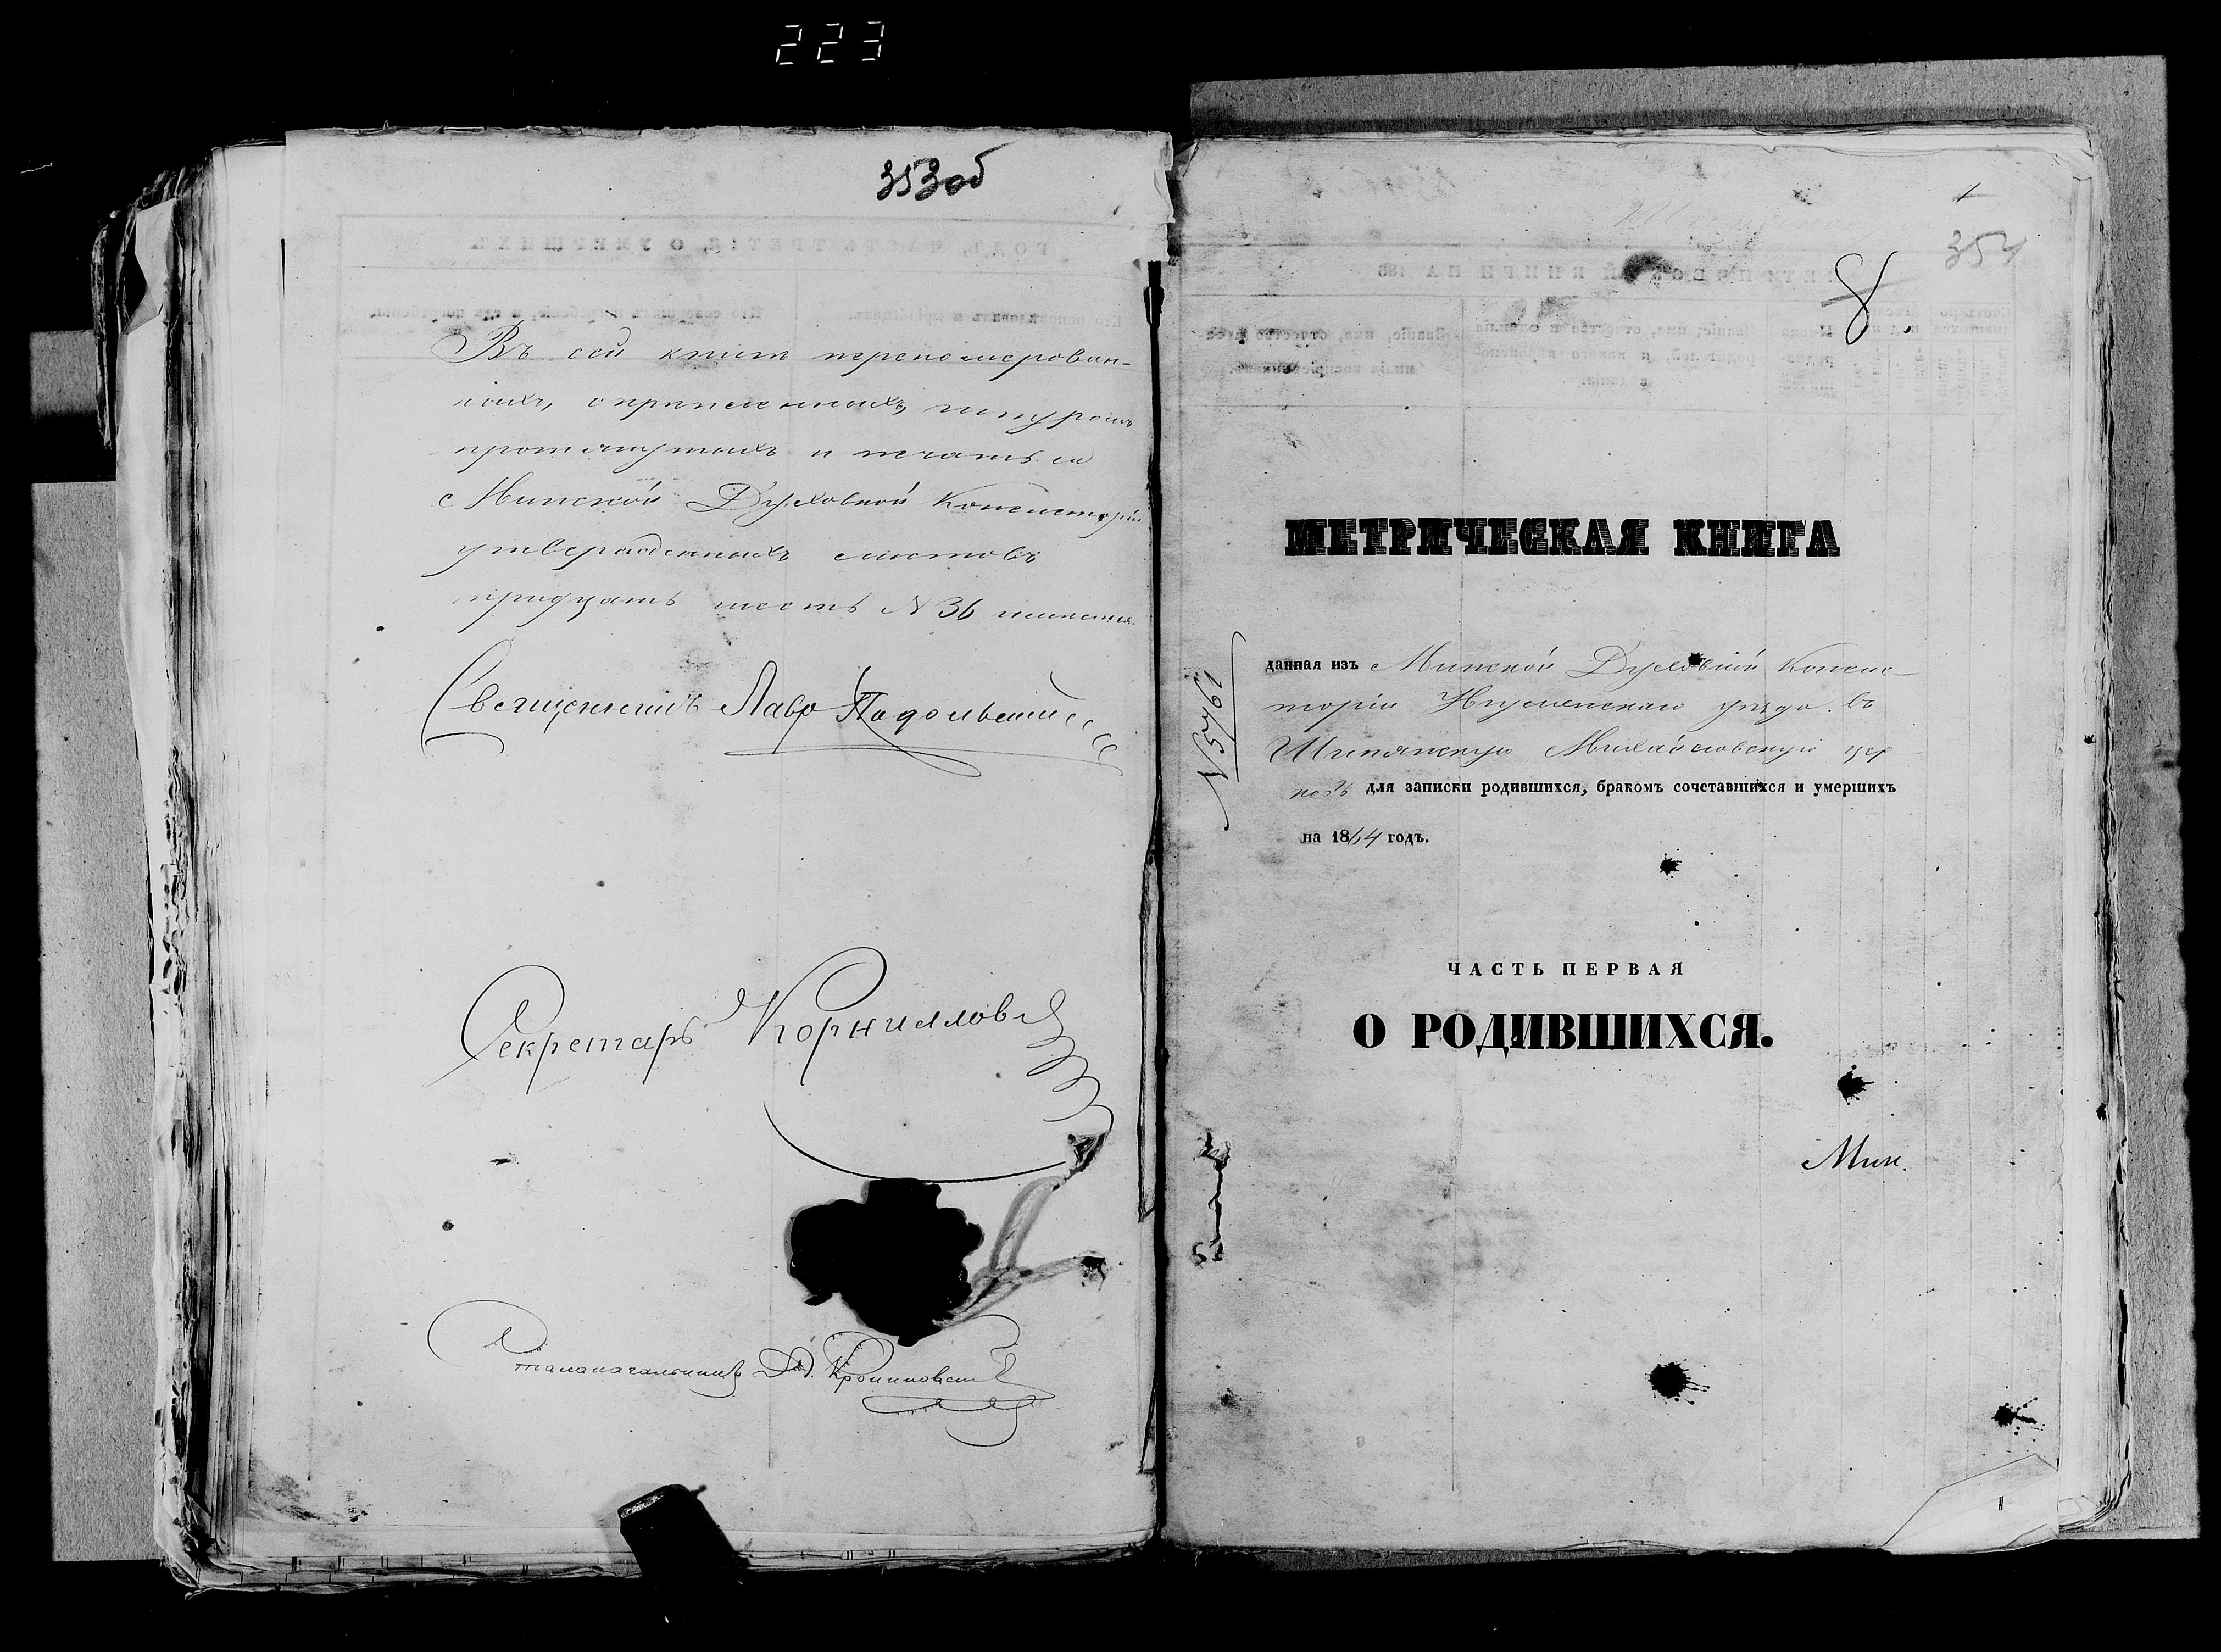 223
353 об
Въ сей книге перенумерован-
ныхъ, скрепленныхъ, шнуромъ
протянутыхъ и печатью
Минской Духовной Консисторіи
утвержденныхъ листовъ
тридцать шесть N 36
Священникъ Лавр
Секретарь Корниловъ
Столоначальникъ
1
354
8
МЕТРИЧЕСКАЯ КНИГА
N 5761
данная изъ Минской Духовной Консис-
торіи Игуменскаго уезда въ
Михайловскую цер-
ковь для записки родившихся, бракомъ сочетавшихся и умершихъ
на 1864 годъ.
ЧАСТЬ ПЕРВАЯ
О РОДИВШИХСЯ.
Мин.